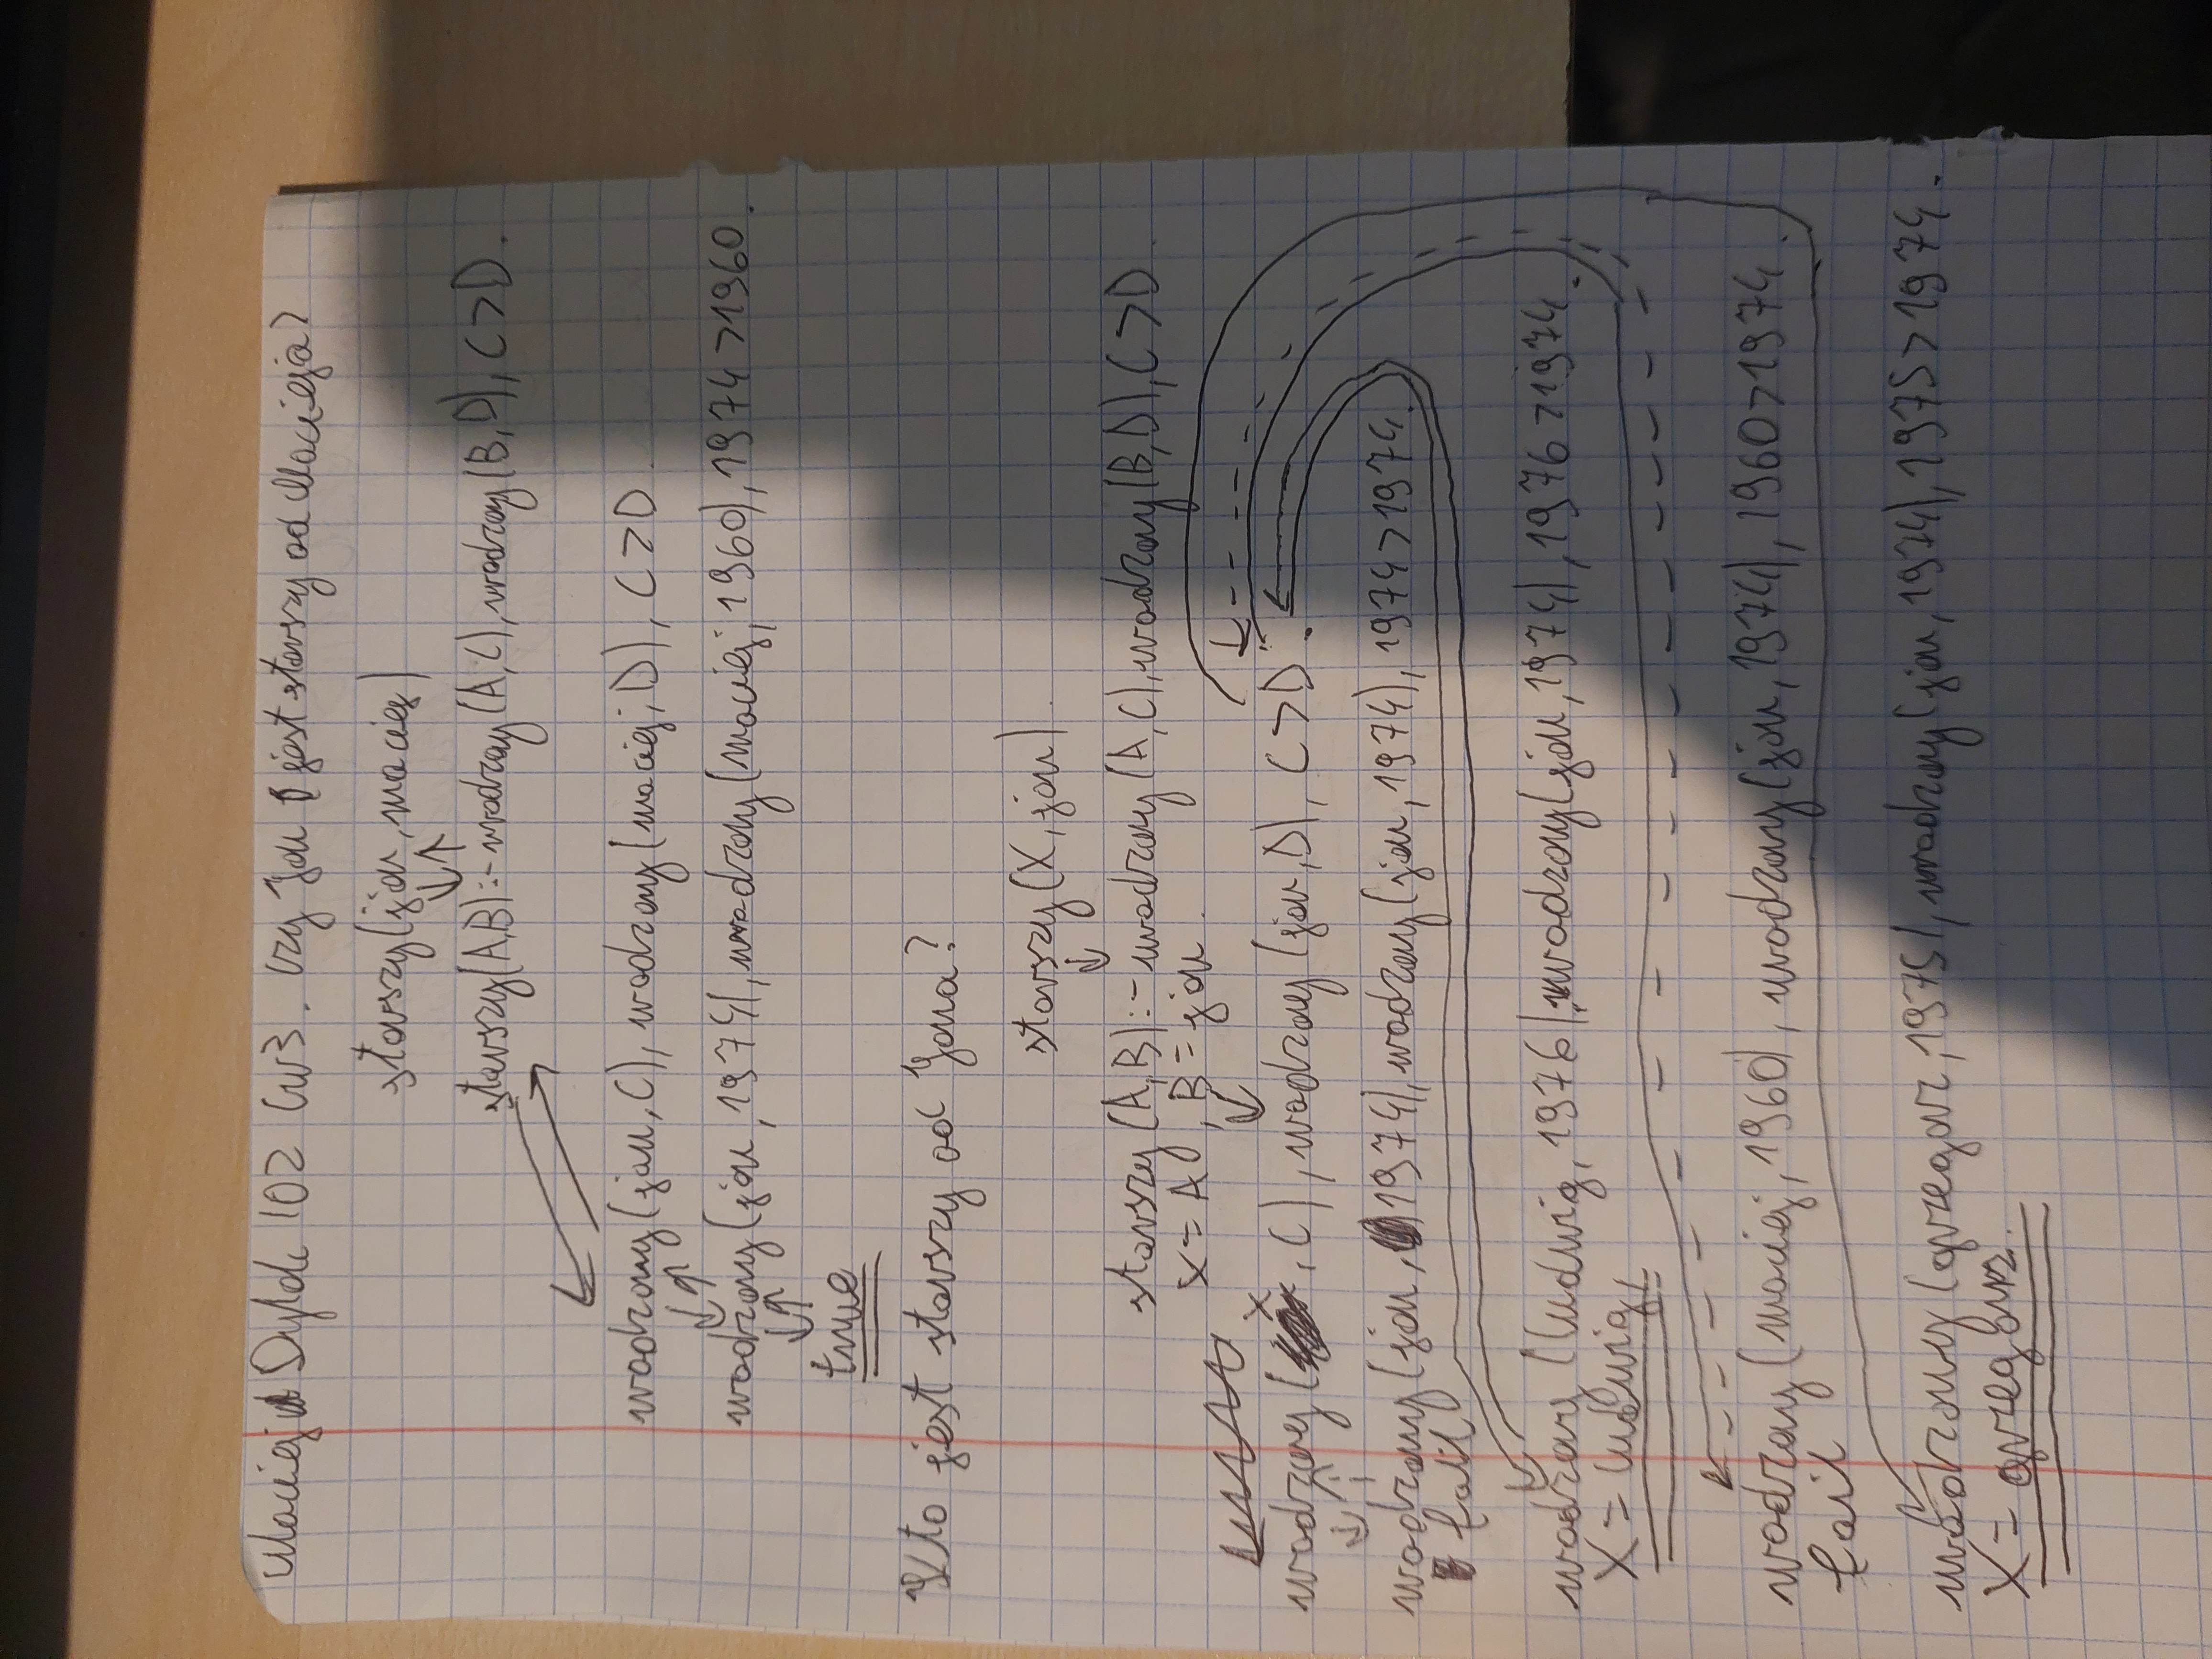 Maciej Dyląk 102 Ćw3. Czy Jan jest starszy od Macieja?
starszy(jan, maciej)
starszy(A,B):-urodzony(A,C),urodzony(B,D), C>D.
urodzony(jan,C), urodzony(maciej,D), C>D.
urodzony(jan,1974), urodzony(maciej,1960), 1974>1960.
true
Kto jest starszy od Jana?
starszy(X,jan).
starszy(A,B):-urodzony(A,C),urodzony(B,D),C>D.
X=A, B=jan.
urodzony(X,C), urodzony(jan,D), C>D.
urodzony(jan,1974),urodzony(jan,1974), 1974>1974.
fail
urodzony(ludwig,1976),urodzony(jan,1974), 1976>1974.
X=ludwig,
urodzony(maciej,1960), urodzony(jan,1974), 1960>1974.
fail
urodzony(grzegorz,1975), urodzony(jan,1974), 1975>1974.
X=grzegorz.